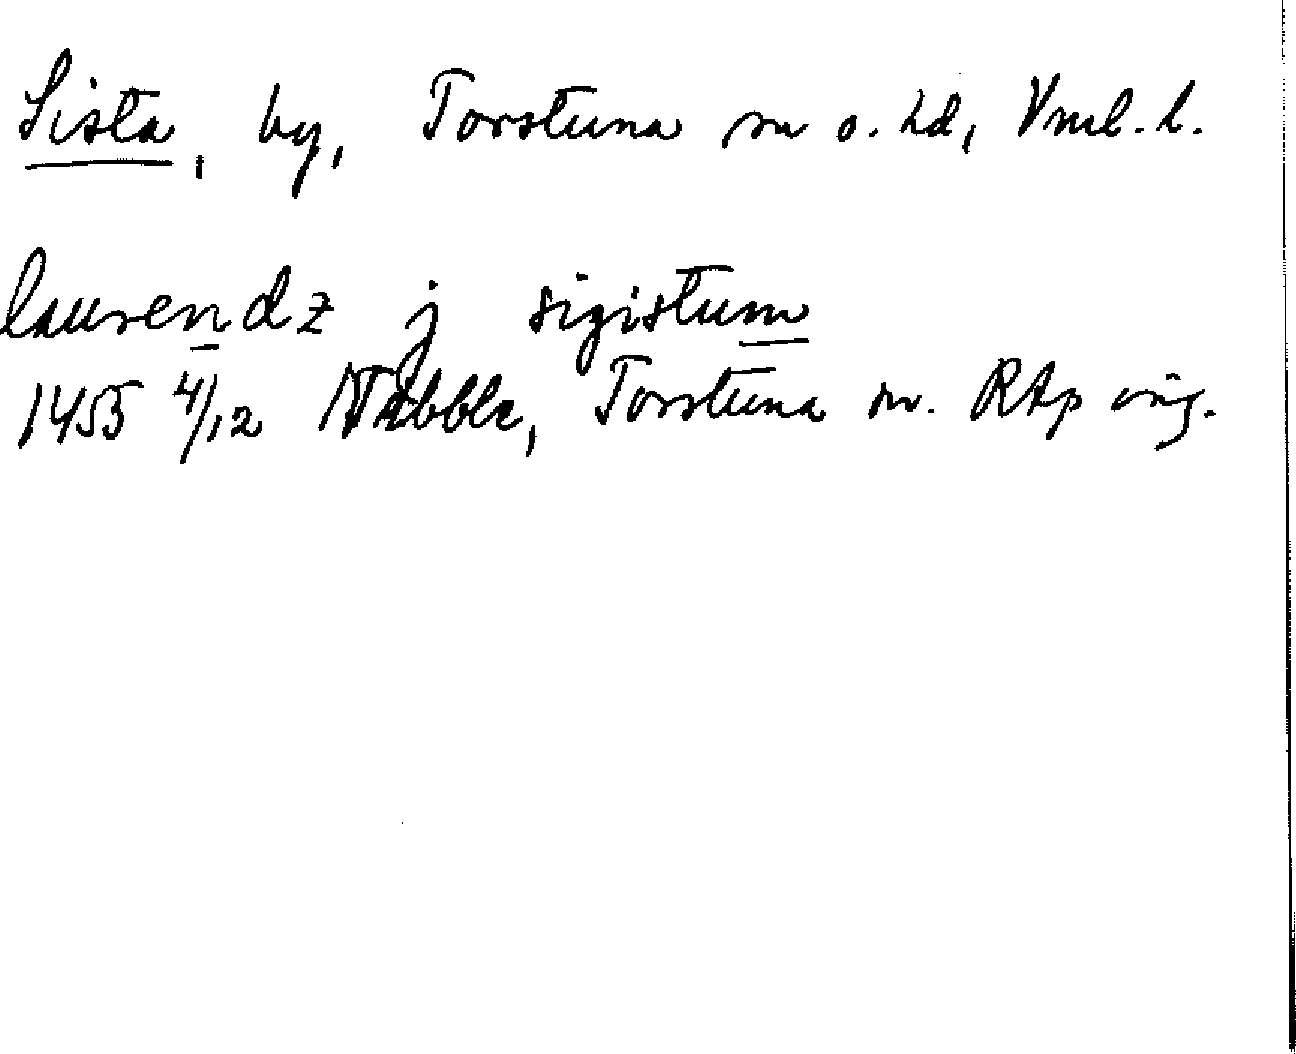 Sista, by, Torstuna sn o. hd, Vml. l.
laurendz j sigistum
1455 4/12 Näbbla, Torstuna sn. RAp orig.